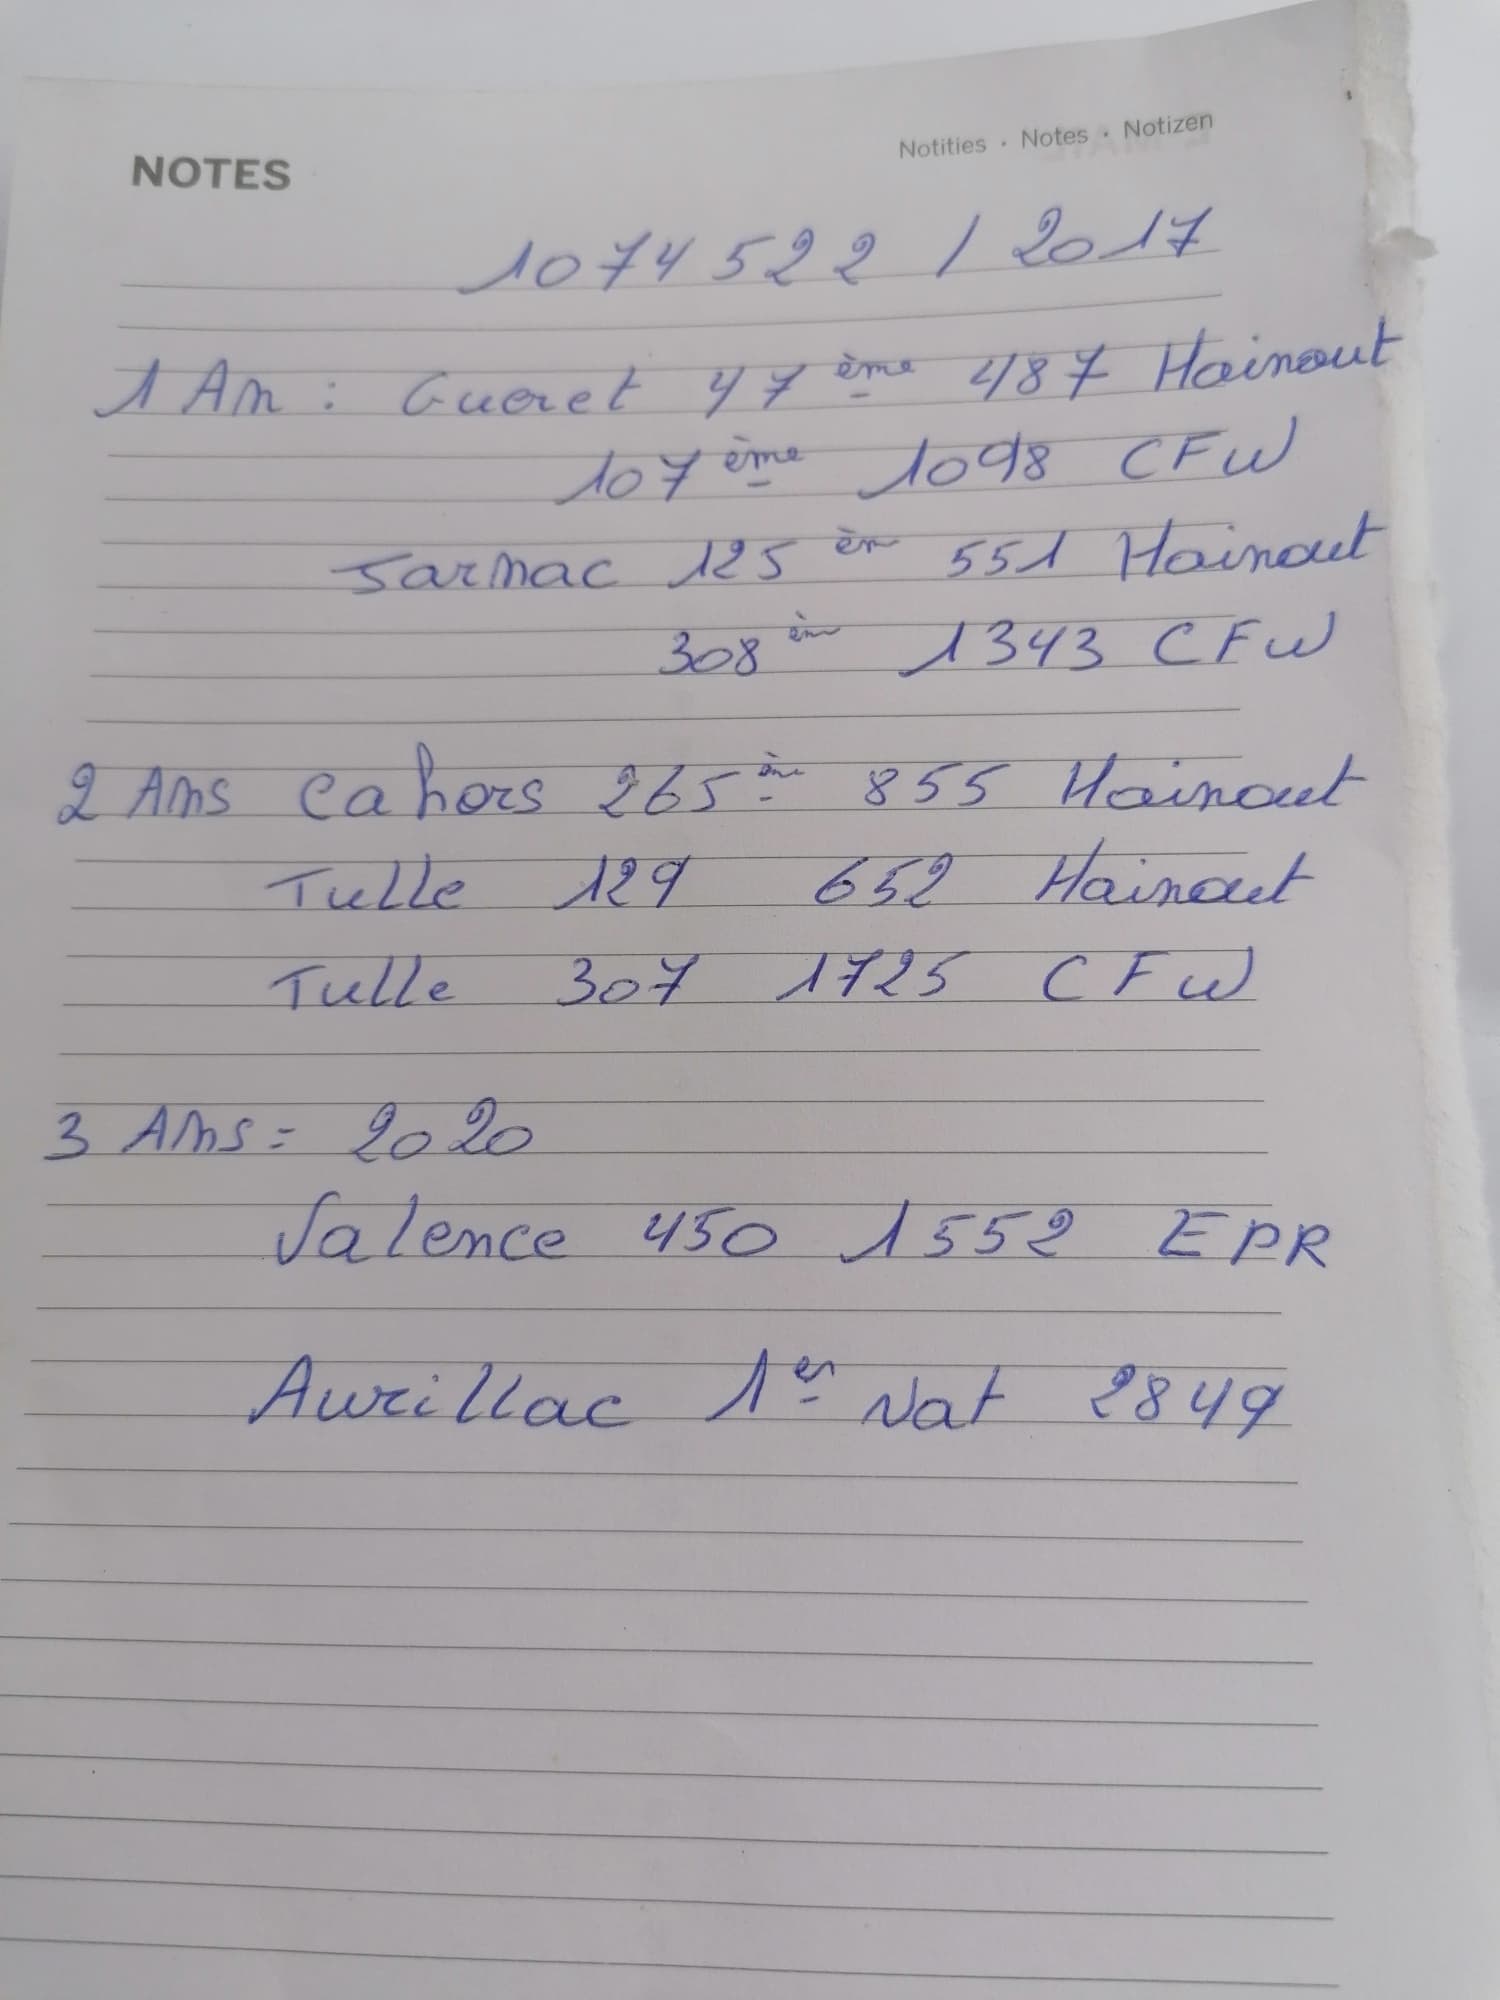 NOTES
Notities · Notes · Notizen
1074522 / 2017
1 An : Gueret 47 ème 487 Hainaut
107 ème 1098 CFW
Jarnac 125 èm 551 Hainaut
308 èm 1343 CFW
2 Ans Cahors 265 èm 855 Hainaut
Tulle 129 652 Hainaut
Tulle 307 1725 CFW
3 Ans = 2020
Valence 450 1552 EPR
Aurillac 1er Nat 2849